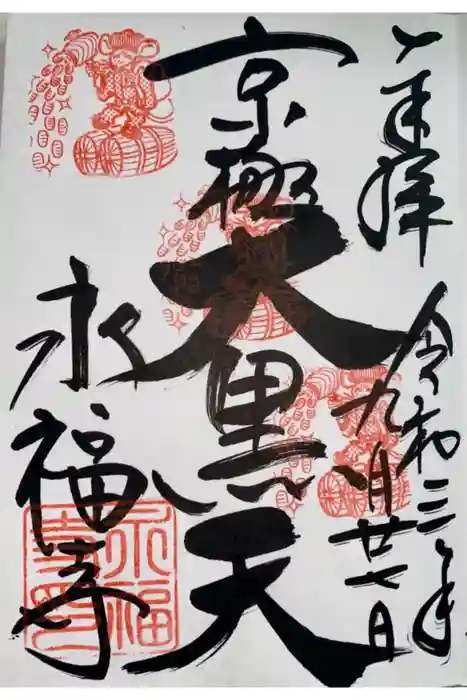 奉拝
令和三年
九月廿七日
京極
大黒天
永福寺
永福
寺印